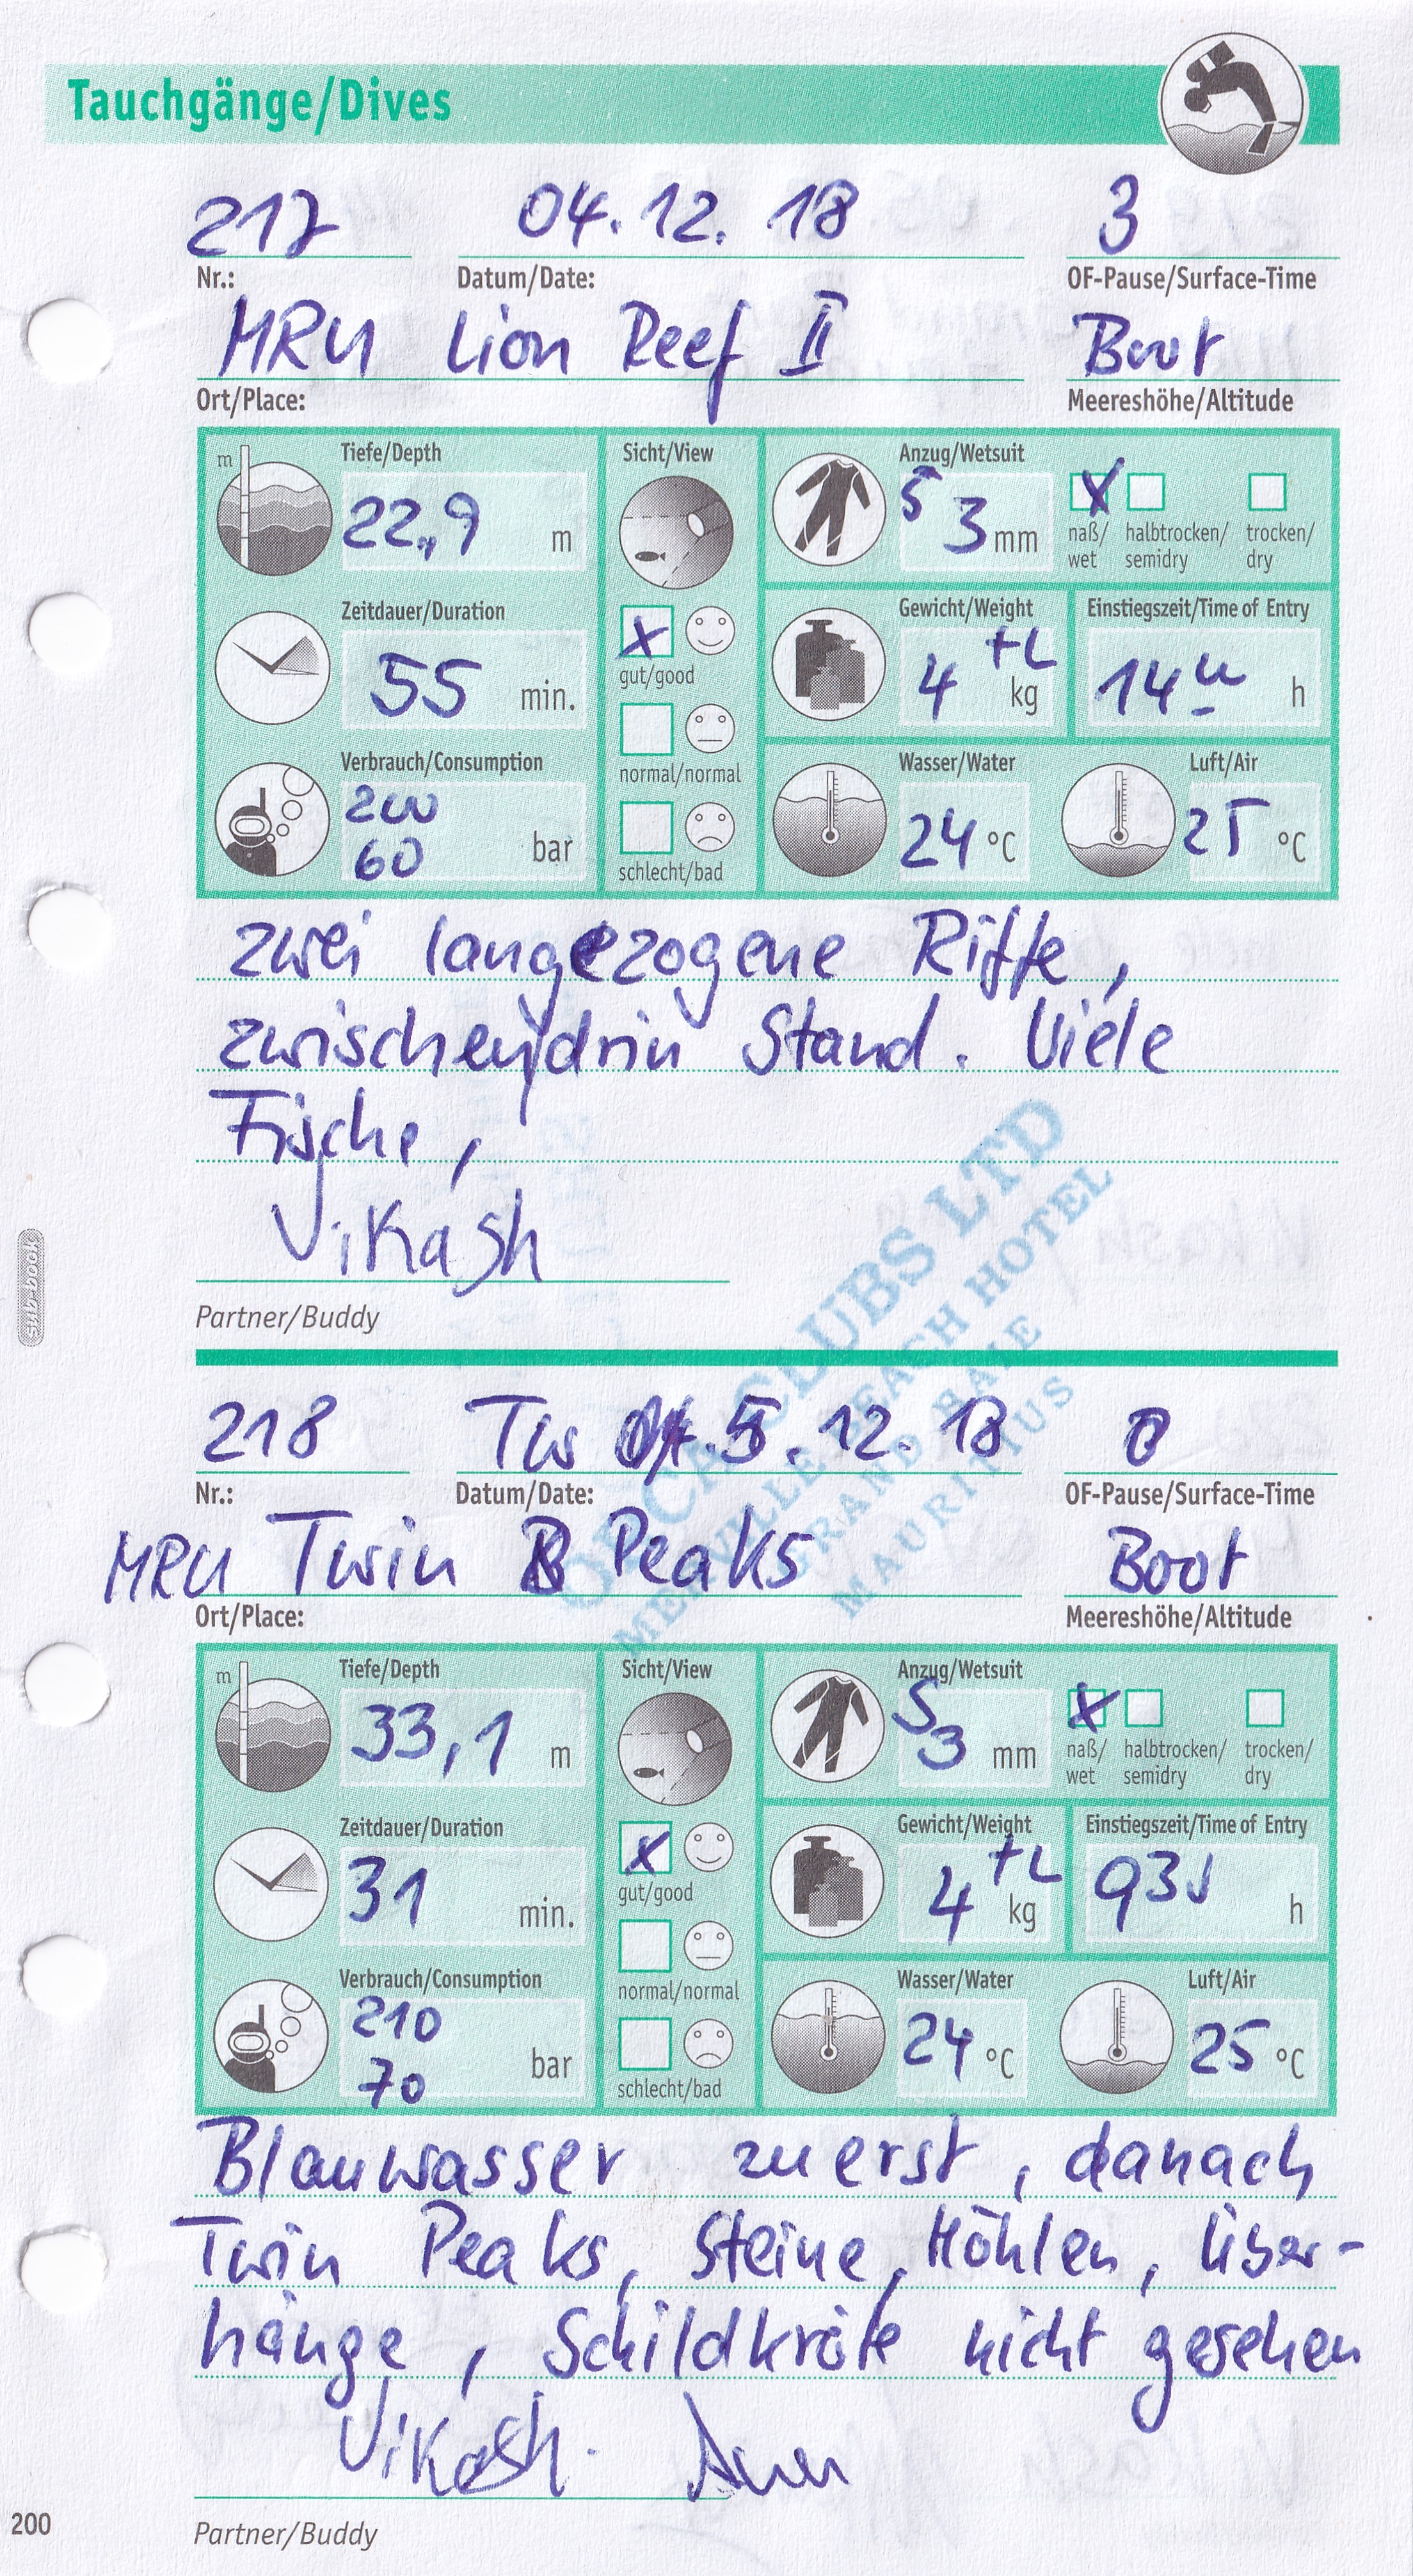 Tauchgänge/Dives
217 04.12.18 3
Nr.: Datum/Date: OF-Pause/Surface-Time
MRU Lion Reef II Boot
Ort/Place: Meereshöhe/Altitude
m Tiefe/Depth Sicht/View Anzug/Wetsuit
22,9 m 5 3 mm X
naß/ halbtrocken/ trocken/
wet semidry dry
Zeitdauer/Duration Gewicht/Weight Einstiegszeit/Time of Entry
55 min. X 4 +L kg 14 u h
gut/good
Verbrauch/Consumption normal/normal Wasser/Water Luft/Air
200
60 bar 24 °C 25 °C
schlecht/bad
zwei langezogene Riffe,
zwischendrin Stand. Viele
Fische,
Vikash
Partner/Buddy
sub-book
CLUBS LTD
MERVILLE BEACH HOTEL
GRAND BAIE
MAURITIUS
218 5.12.18 0
Nr.: Datum/Date: OF-Pause/Surface-Time
MRU Twin Peaks Boot
Ort/Place: Meereshöhe/Altitude
m Tiefe/Depth Sicht/View Anzug/Wetsuit
33,1 m 5 3 mm X
naß/ halbtrocken/ trocken/
wet semidry dry
Zeitdauer/Duration Gewicht/Weight Einstiegszeit/Time of Entry
31 min. X 4 +L kg 930 h
gut/good
Verbrauch/Consumption normal/normal Wasser/Water Luft/Air
210
70 bar 24 °C 25 °C
schlecht/bad
Blauwasser zuerst, danach
Twin Peaks, Steine, Höhlen, Über-
hänge, Schildkröte nicht gesehen
Vikash
Partner/Buddy
200